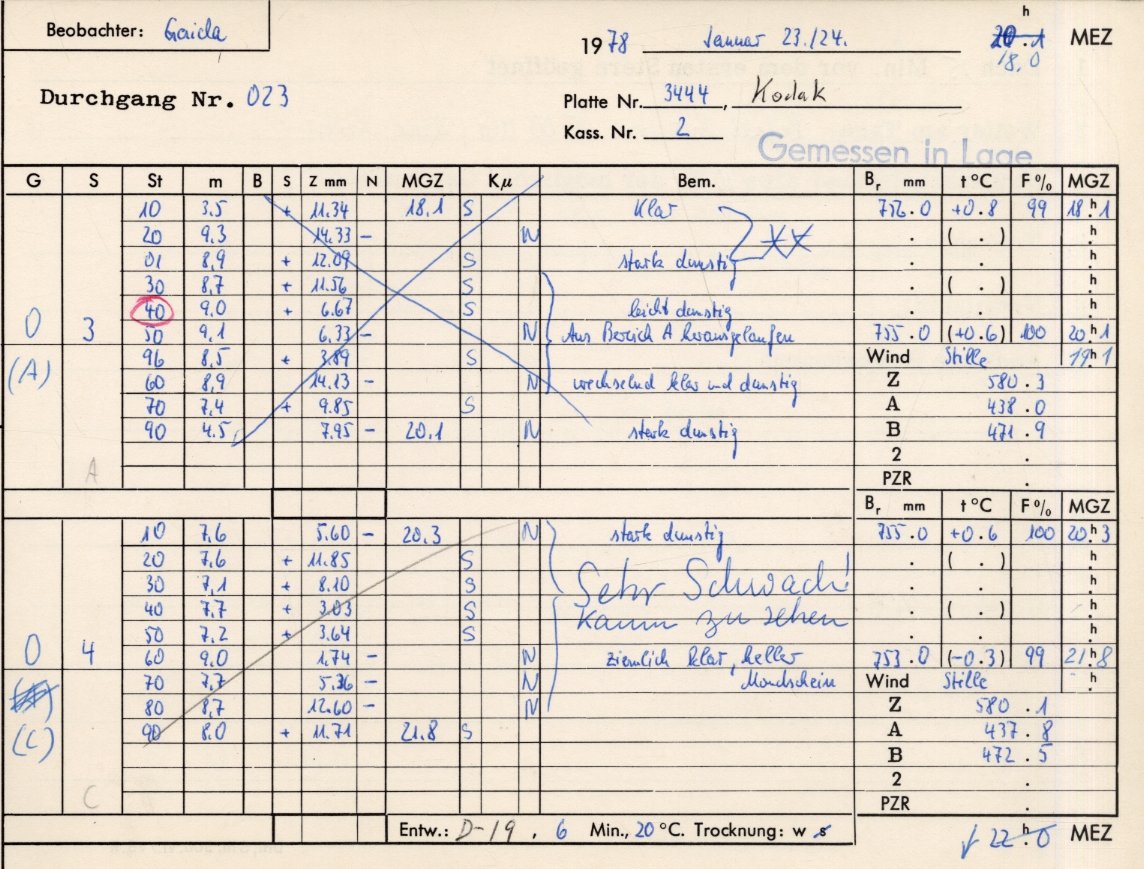 Beobachter: Gaida
1978 Januar 23./24. 20.1 h MEZ
18,0
Durchgang Nr. 023
Platte Nr. 3444, Kodak
Kass. Nr. 2
Gemessen in Lage
G S St m B S Z mm N MGZ Kμ Bem. Br mm t °C F % MGZ
10 3.5 + 11.34 18.1 S klar 756.0 +0.8 99 18.h1
20 9.3 14.33 – N . ( . ) .h
01 8,9 + 12.09 S stark dunstig . . .h
30 8,7 + 11.56 S . ( . ) .h
40 9.0 + 6.67 S leicht dunstig . . .h
0 3 50 9.1 6.33 – N Aus Bereich A herausgelaufen 755.0 (+0.6) 100 20.h1
(A) 96 8,5 + 3.89 S Wind Stille 19h1
60 8,9 14.13 – N wechselnd klar und dunstig Z 580.3
70 7,4 + 9.85 S A 438.0
90 4.5 7.95 – 20.1 N stark dunstig B 471.9
2 .
A PZR .
Br mm t °C F % MGZ
10 7,6 5.60 – 20.3 N stark dunstig 755.0 +0.6 100 20.h3
20 7,6 + 11.85 S . ( . ) .h
30 7,1 + 8.10 S Sehr Schwach! . . .h
40 7,7 + 3.03 S kaum zu sehen . ( . ) .h
50 7,2 + 3.64 S . . .h
0 4 60 9,0 1.74 – N ziemlich klar, heller 753.0 (–0.3) 99 21.h8
70 7,7 5.36 – N Mondschein Wind Stille .h
80 8,7 12.60 – N Z 580.1
(C) 90 8.0 + 11.71 21.8 S A 437.8
B 472.5
2 .
C PZR .
Entw.: D-19, 6 Min., 20 °C. Trocknung: w s
22.h0 MEZ